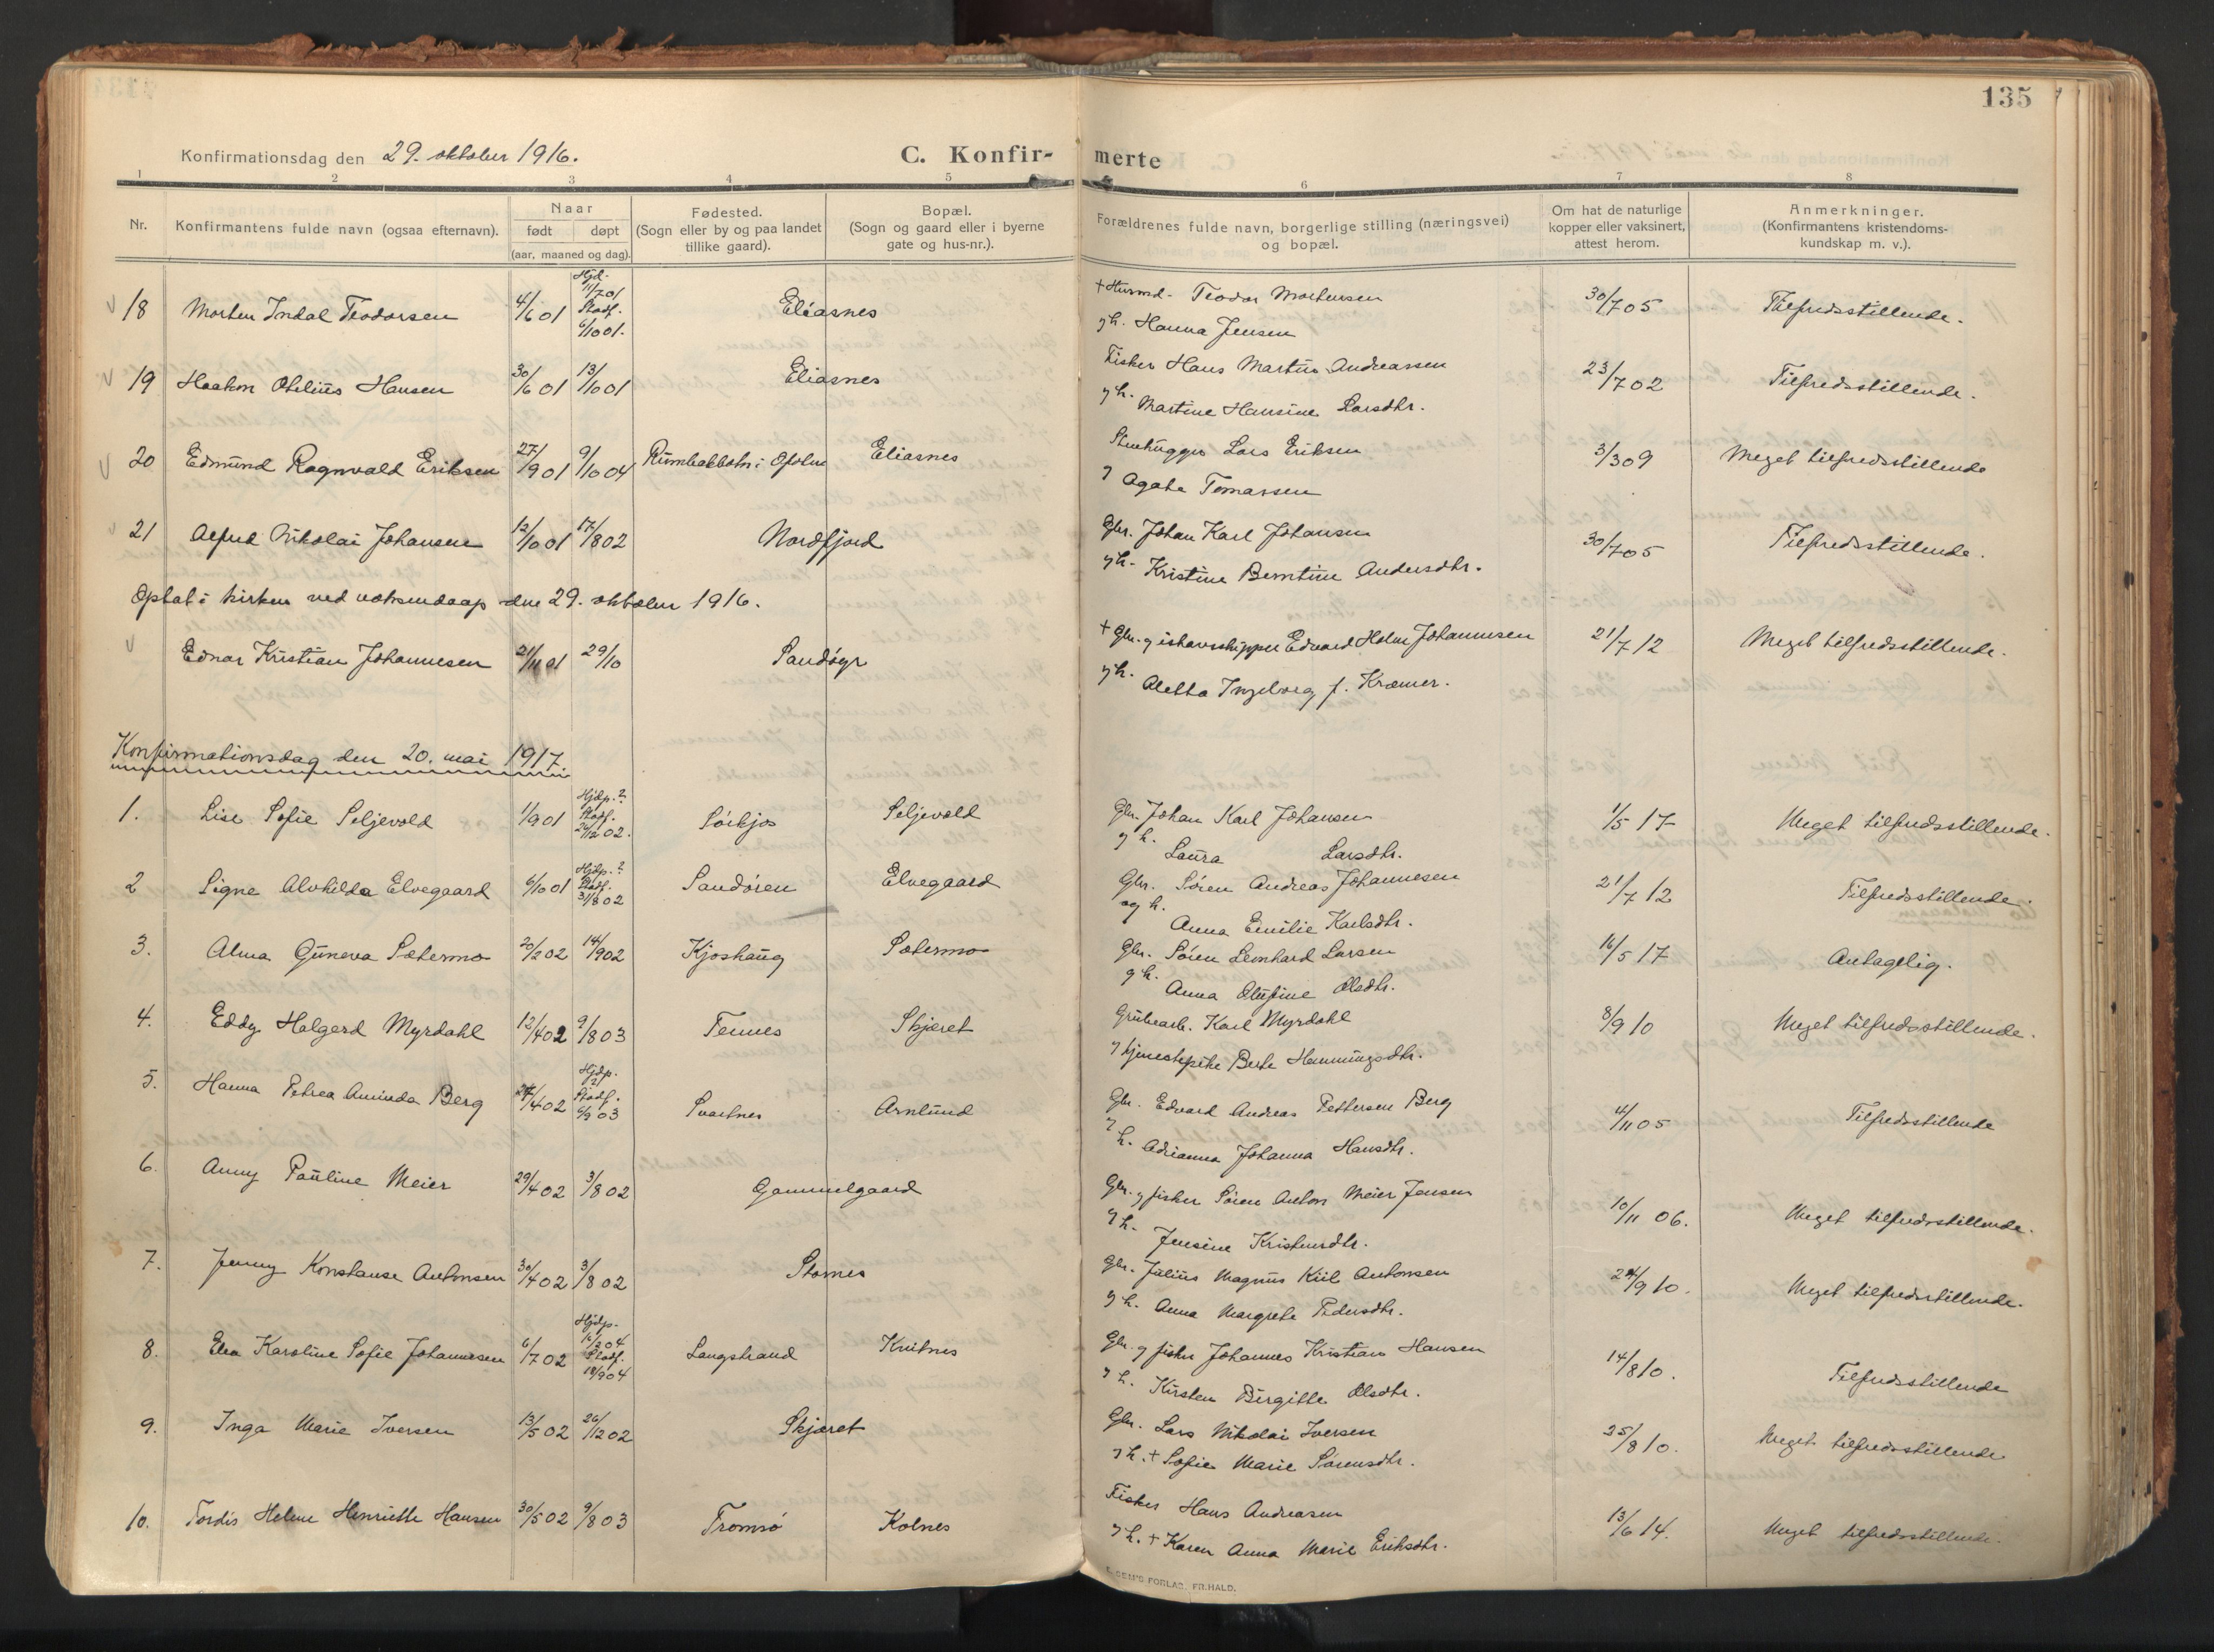 135
Konfirmationsdag den 29. oktober 1916. C. Konfir- merte
1 2 3 4 5 6 7 8
Nr. Konfirmantens fulde navn (ogsaa efternavn). Naar født døpt (aar, maaned og dag). Fødested. (Sogn eller by og paa landet tillike gaard). Bopæl. (Sogn og gaard eller i byerne gate og hus-nr.). Forældrenes fulde navn, borgerlige stilling (næringsvei) og bopæl. Om hat de naturlige kopper eller vaksinert, attest herom. Anmerkninger. (Konfirmantens kristendoms- kundskap m. v.).
18 Morten Indal Teodorsen 4/6 01 Hjd. 11/7 01 Stadf. 6/10 01. Eliasnes + Husmd. Teodor Mortensen 30/7 05 Tilfredsstillende.
g h. Hanna Jensen
19 Haakon Otelius Hansen 30/6 01 13/10 01 Eliasnes Fisker Hans Martin Andreassen 23/7 02 Tilfredsstillende.
g h. Martine Hansine Larsdtr.
20 Edmund Ragnvald Eriksen 27/9 01 9/10 04 Rumbakbotn i Ofoten Eliasnes Stenhugger Lars Eriksen 3/3 09 Meget tilfredsstillende
g Agate Tomassen
21 Alfred Nikolai Johansen 12/10 01 17/8 02 Nordfjord Gbr. Johan Karl Johansen 30/7 05 Tilfredsstillende.
g h. Kristine Berntine Andersdtr.
Optat i kirken ved voksendaap den 29. oktober 1916.
Einar Kristian Johannesen 21/11 01 29/10 Sandøyr + Gbr. g ishavsskipper Edvard Holm Johannesen 21/7 12 Meget tilfredsstillende.
g h. Aletta Ingeborg f. Kræmer.
Konfirmationsdag den 20. mai 1917.
1. Lise Sofie Seljevold 1/9 01 Hjdp. ? Stadf. 26/12 02. Sørkjos Seljevold Gbr. Johan Karl Johansen 1/5 17 Meget tilfredsstillende.
g h. Laura Larsdtr.
2 Signe Alvhilda Elvegaard 6/10 01 Hjdp. ? Stadf. 31/8 02 Sandøren Elvegaard Gbr. Søren Andreas Johannesen 21/7 12 Tilfredsstillende.
og h. Anna Emilie Karlsdtr.
3. Alma Guneva Sætermo 20/2 02 14/9 02 Kjoshaug Sætermo Gbr. Søren Leonhard Larsen 16/5 17 Antagelig.
g h. Anna Olufine Olsdtr.
4. Eddy Halgerd Myrdahl 12/4 02 9/8 03 Tennes Skjæret Grubearb. Karl Myrdahl 8/9 10 Meget tilfredsstillende.
g tjenestepike Berte Henningsdtr.
5. Hanna Petrea Aminda Berg 27/4 02 Hjdp. ? Stadf. 6/9 03 Svartnes Arnlund Gbr. Edvard Andreas Pettersen Berg 4/11 05 Tilfredsstillende
g h. Adrianna Johanna Hansdtr.
6. Anny Pauline Meier 29/4 02 3/8 02 Gammelgaard Gbr. g fisker Søren Anton Meier Jensen 10/11 06. Meget tilfredsstillende.
g h. Jensine Kristensdtr.
7. Jenny Konstanse Antonsen 30/4 02 3/8 02 Stornes Gbr. Julius Magnus Kiil Antonsen 24/9 10. Meget tilfredsstillende.
g h. Anna Margrete Pedersdtr.
8. Elea Karoline Sofie Johannesen 6/7 02 Hjdp. 16/2 04 Stadf. 18/9 04 Langstrand Kvitnes Gbr. g fisker Johannes Kristian Hansen 14/8 10. Tilfredsstillende
g h. Kirsten Birgitte Olsdtr.
9. Inga Marie Iversen 13/5 02 26/12 02 Skjæret Gbr. Lars Nikolai Iversen 25/8 10. Meget tilfredsstillende
g h. + Sofie Marie Sørensdtr.
10. Tordis Helene Henriette Hansen 30/5 02 9/8 03 Tromsø Kolnes Fisker Hans Andreasen 13/6 14. Meget tilfredsstillende.
g h. + Karen Anna Marie Eriksdtr.
FORLAG, FR.HALD.